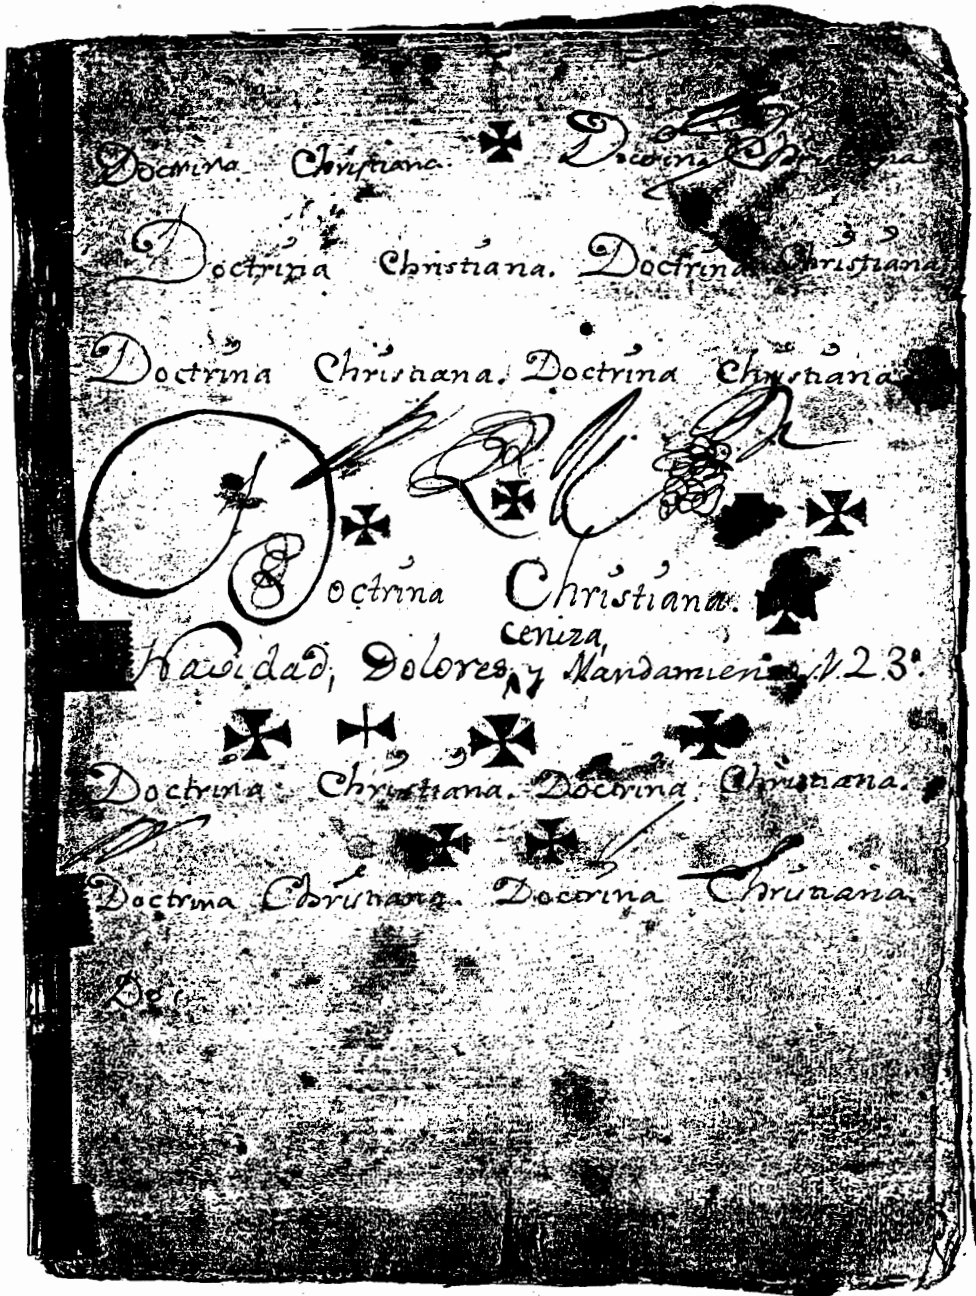 Doctrina Christiana. ✠ Doctrina Christiana
Doctrina Christiana. Doctrina Christiana
Doctrina Christiana. Doctrina Christiana
✠ ✠ ✠
Doctrina Christiana. ✠
ceniza,
Navidad, Dolores, y Mandamien N. 23.
✠ ✠ ✠ ✠
Doctrina Christiana. Doctrina Christiana.
✠ ✠
Doctrina Christiana. Doctrina Christiana.
Doc